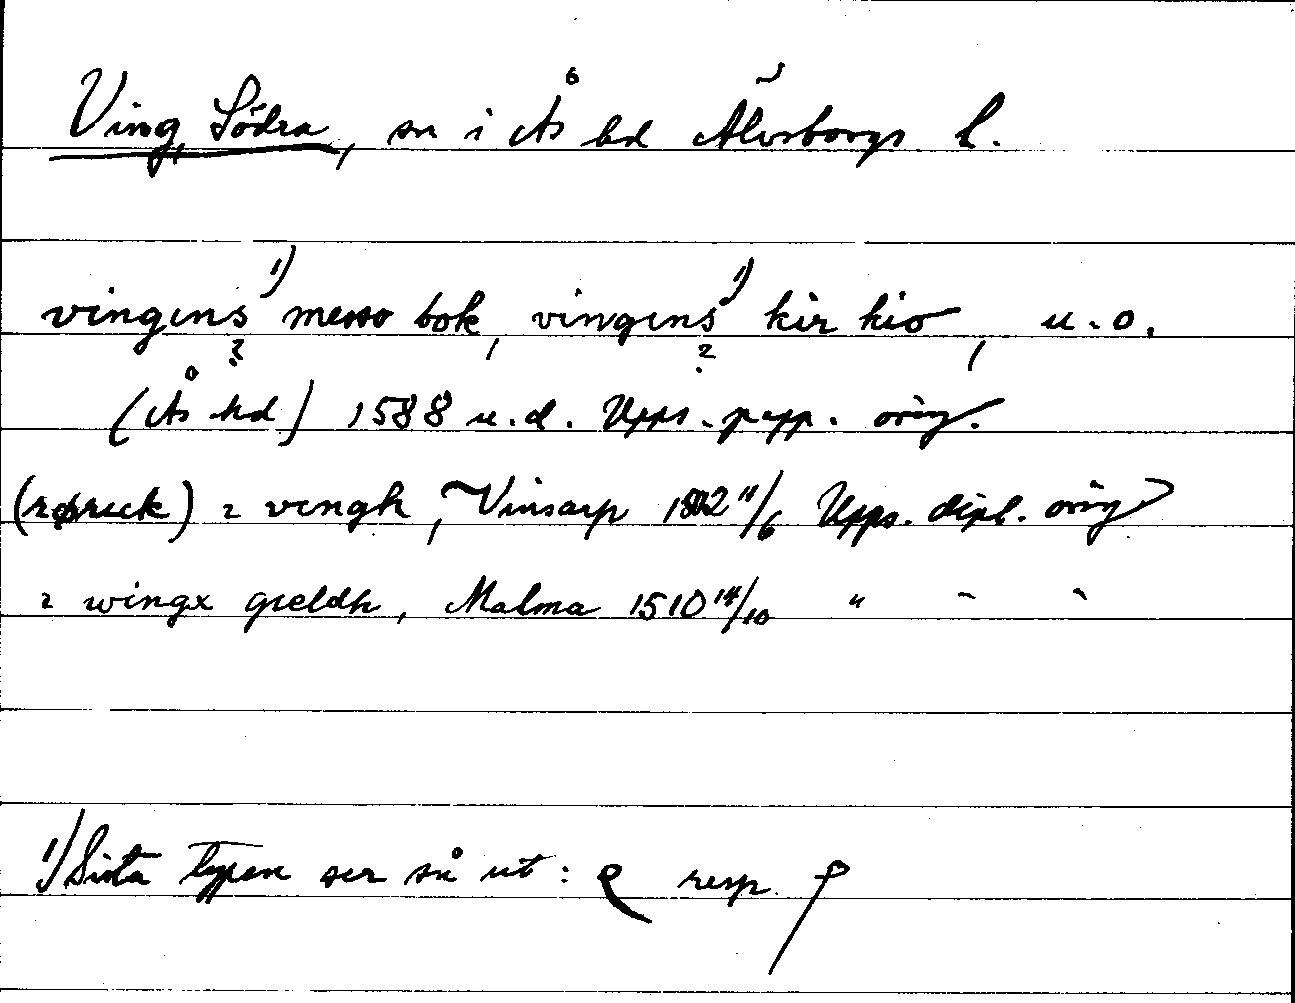 Ving, Södra, sn i Ås hd Älvsborgs l.
vingens¹⁾ messo bok, vingens¹⁾ kir kio, u.o.
? ?
(Ås hd) 1588 u.d. Upps. papp. orig.
(røreck) i vengh, Vinsarp 1502 11/6 Upps. dipl. orig
i wingx gieldh, Malma 1510 14/10 " " "
1) Sista typen ser så ut: resp.